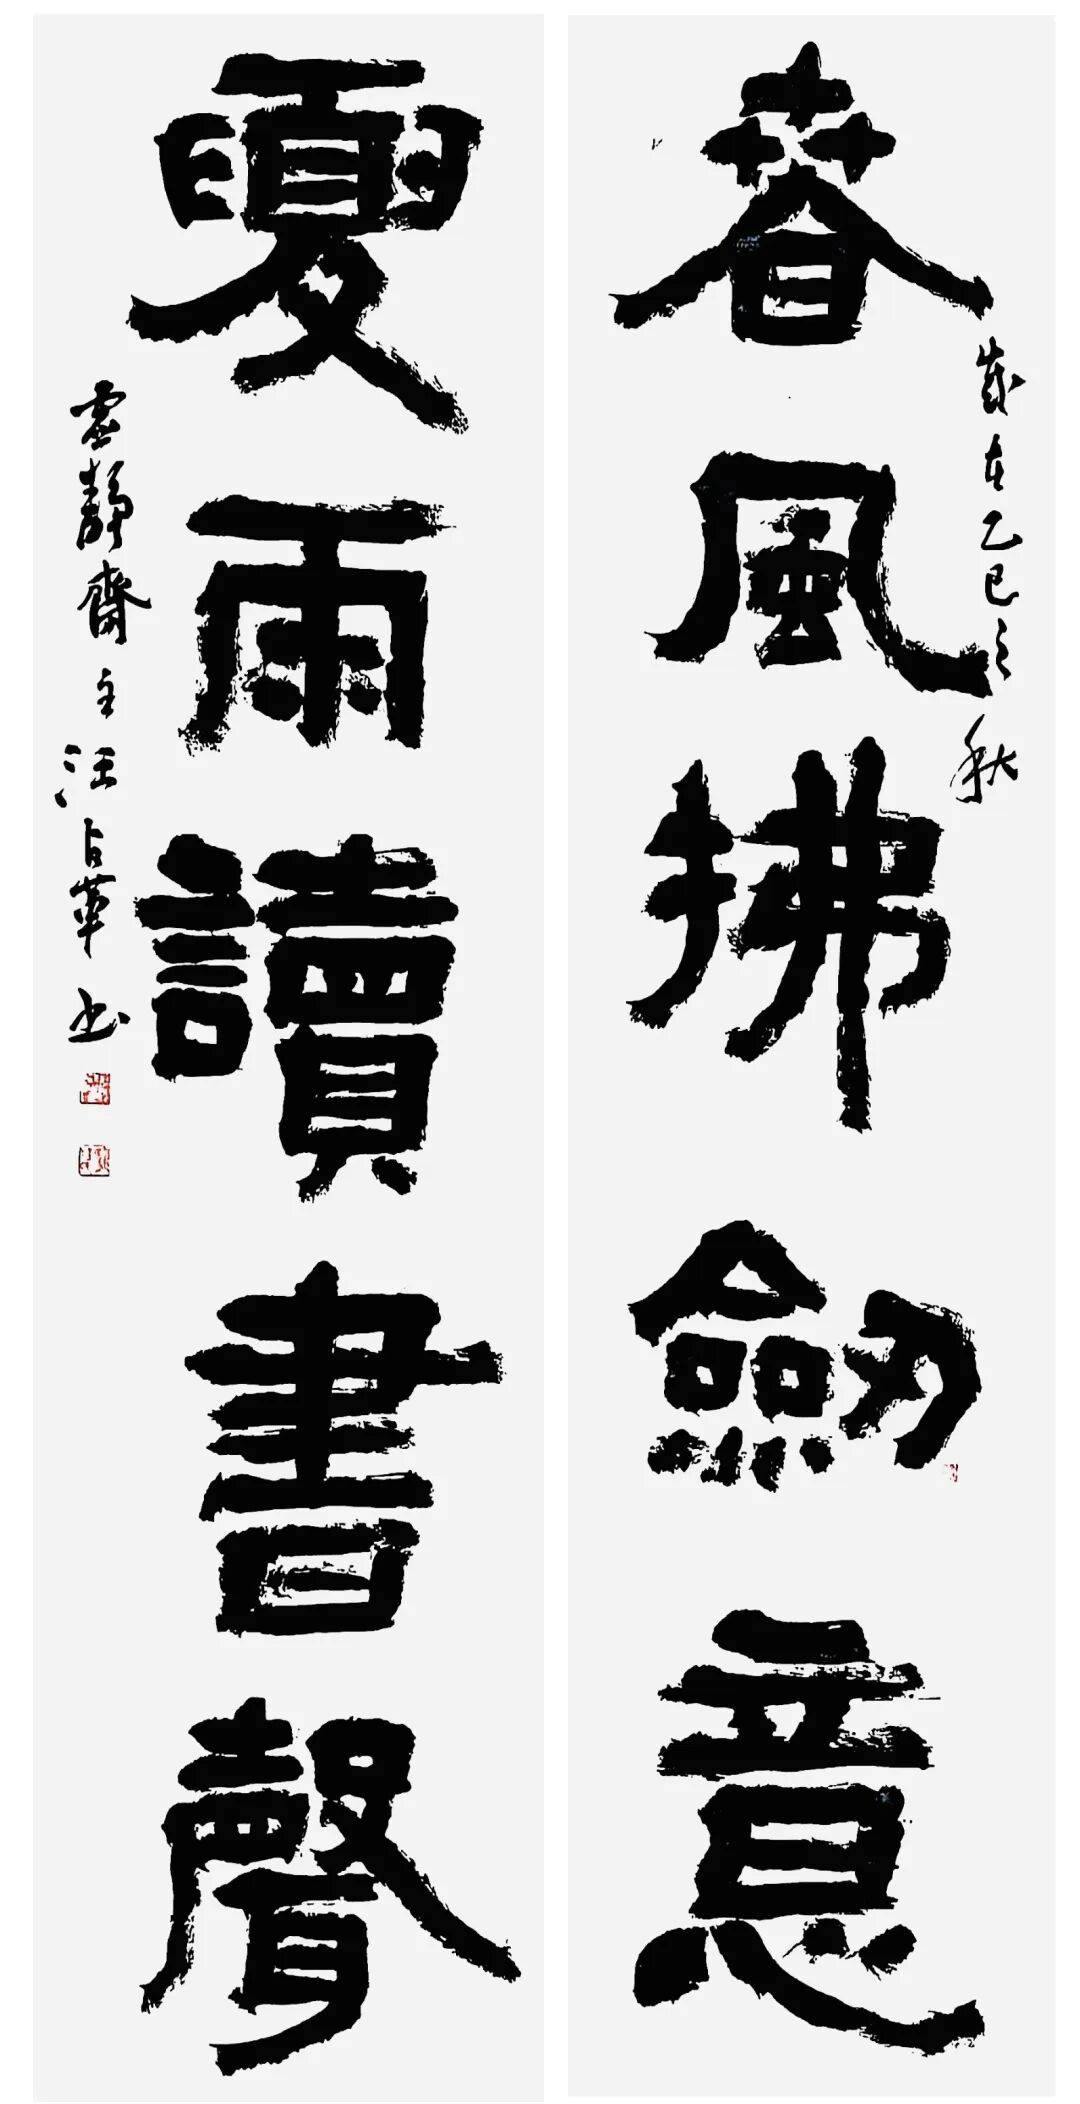 春風拂劍意
歲在乙巳之秋
夏雨讀書聲
雲靜齋主汪占革书